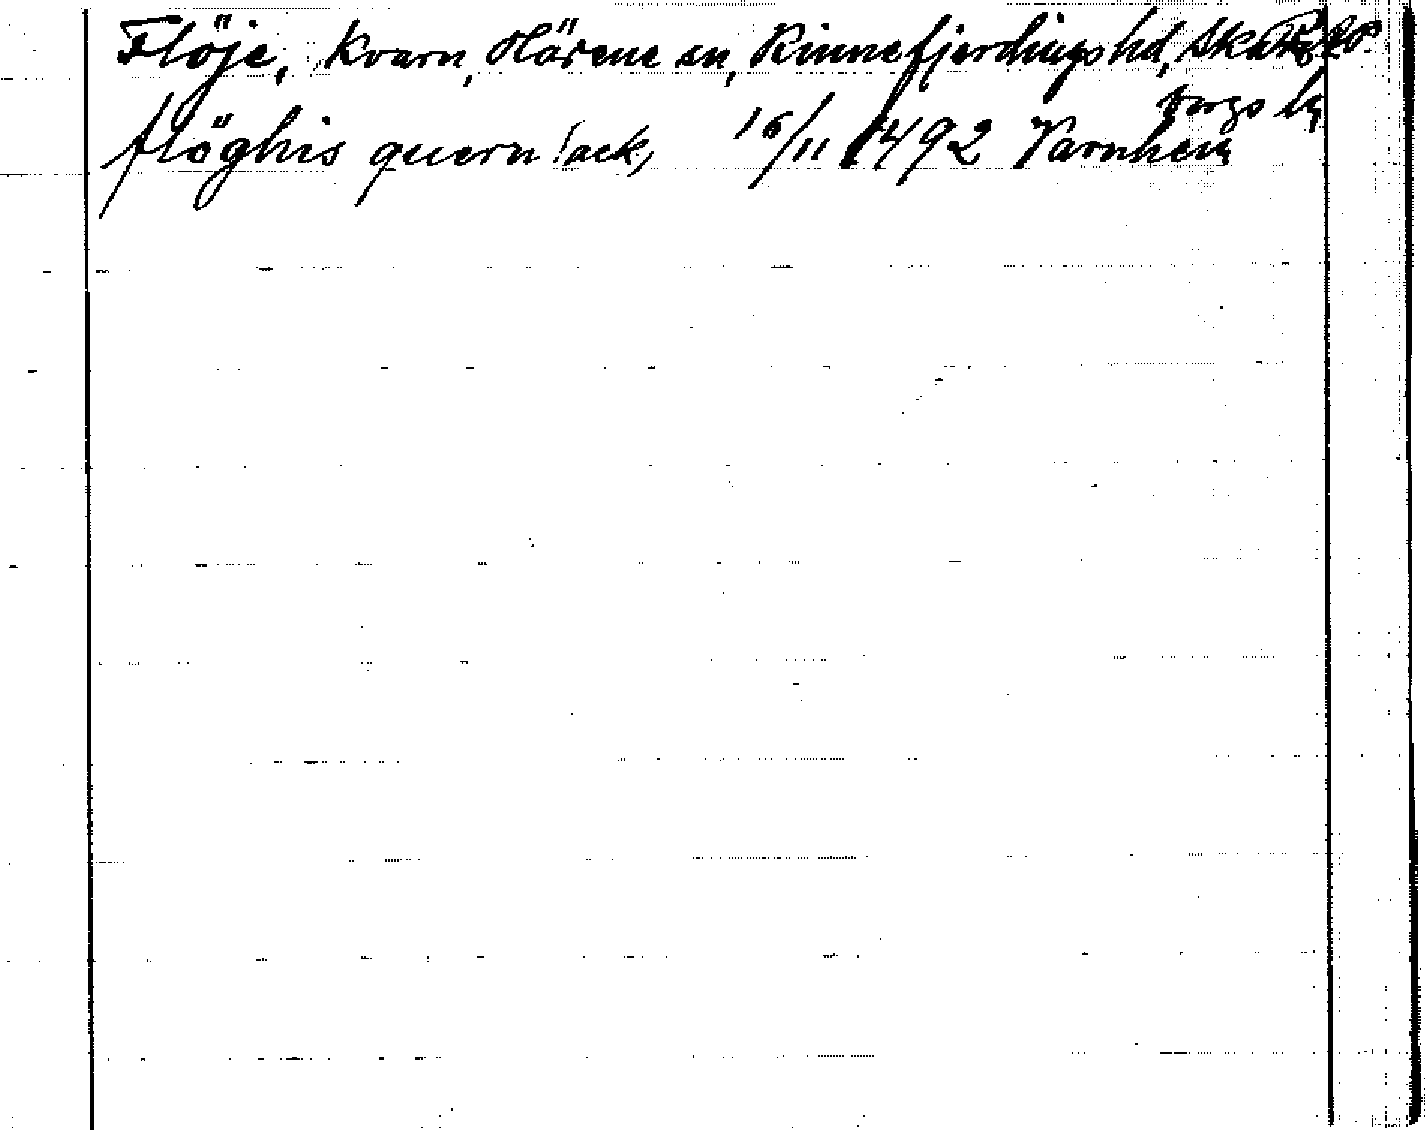 Flöje, kvarn, Härene sn, Kinnefjerdings hd, Skara-
borgs l.
flöghis quern (ack) 16/11 1492 Varnhem